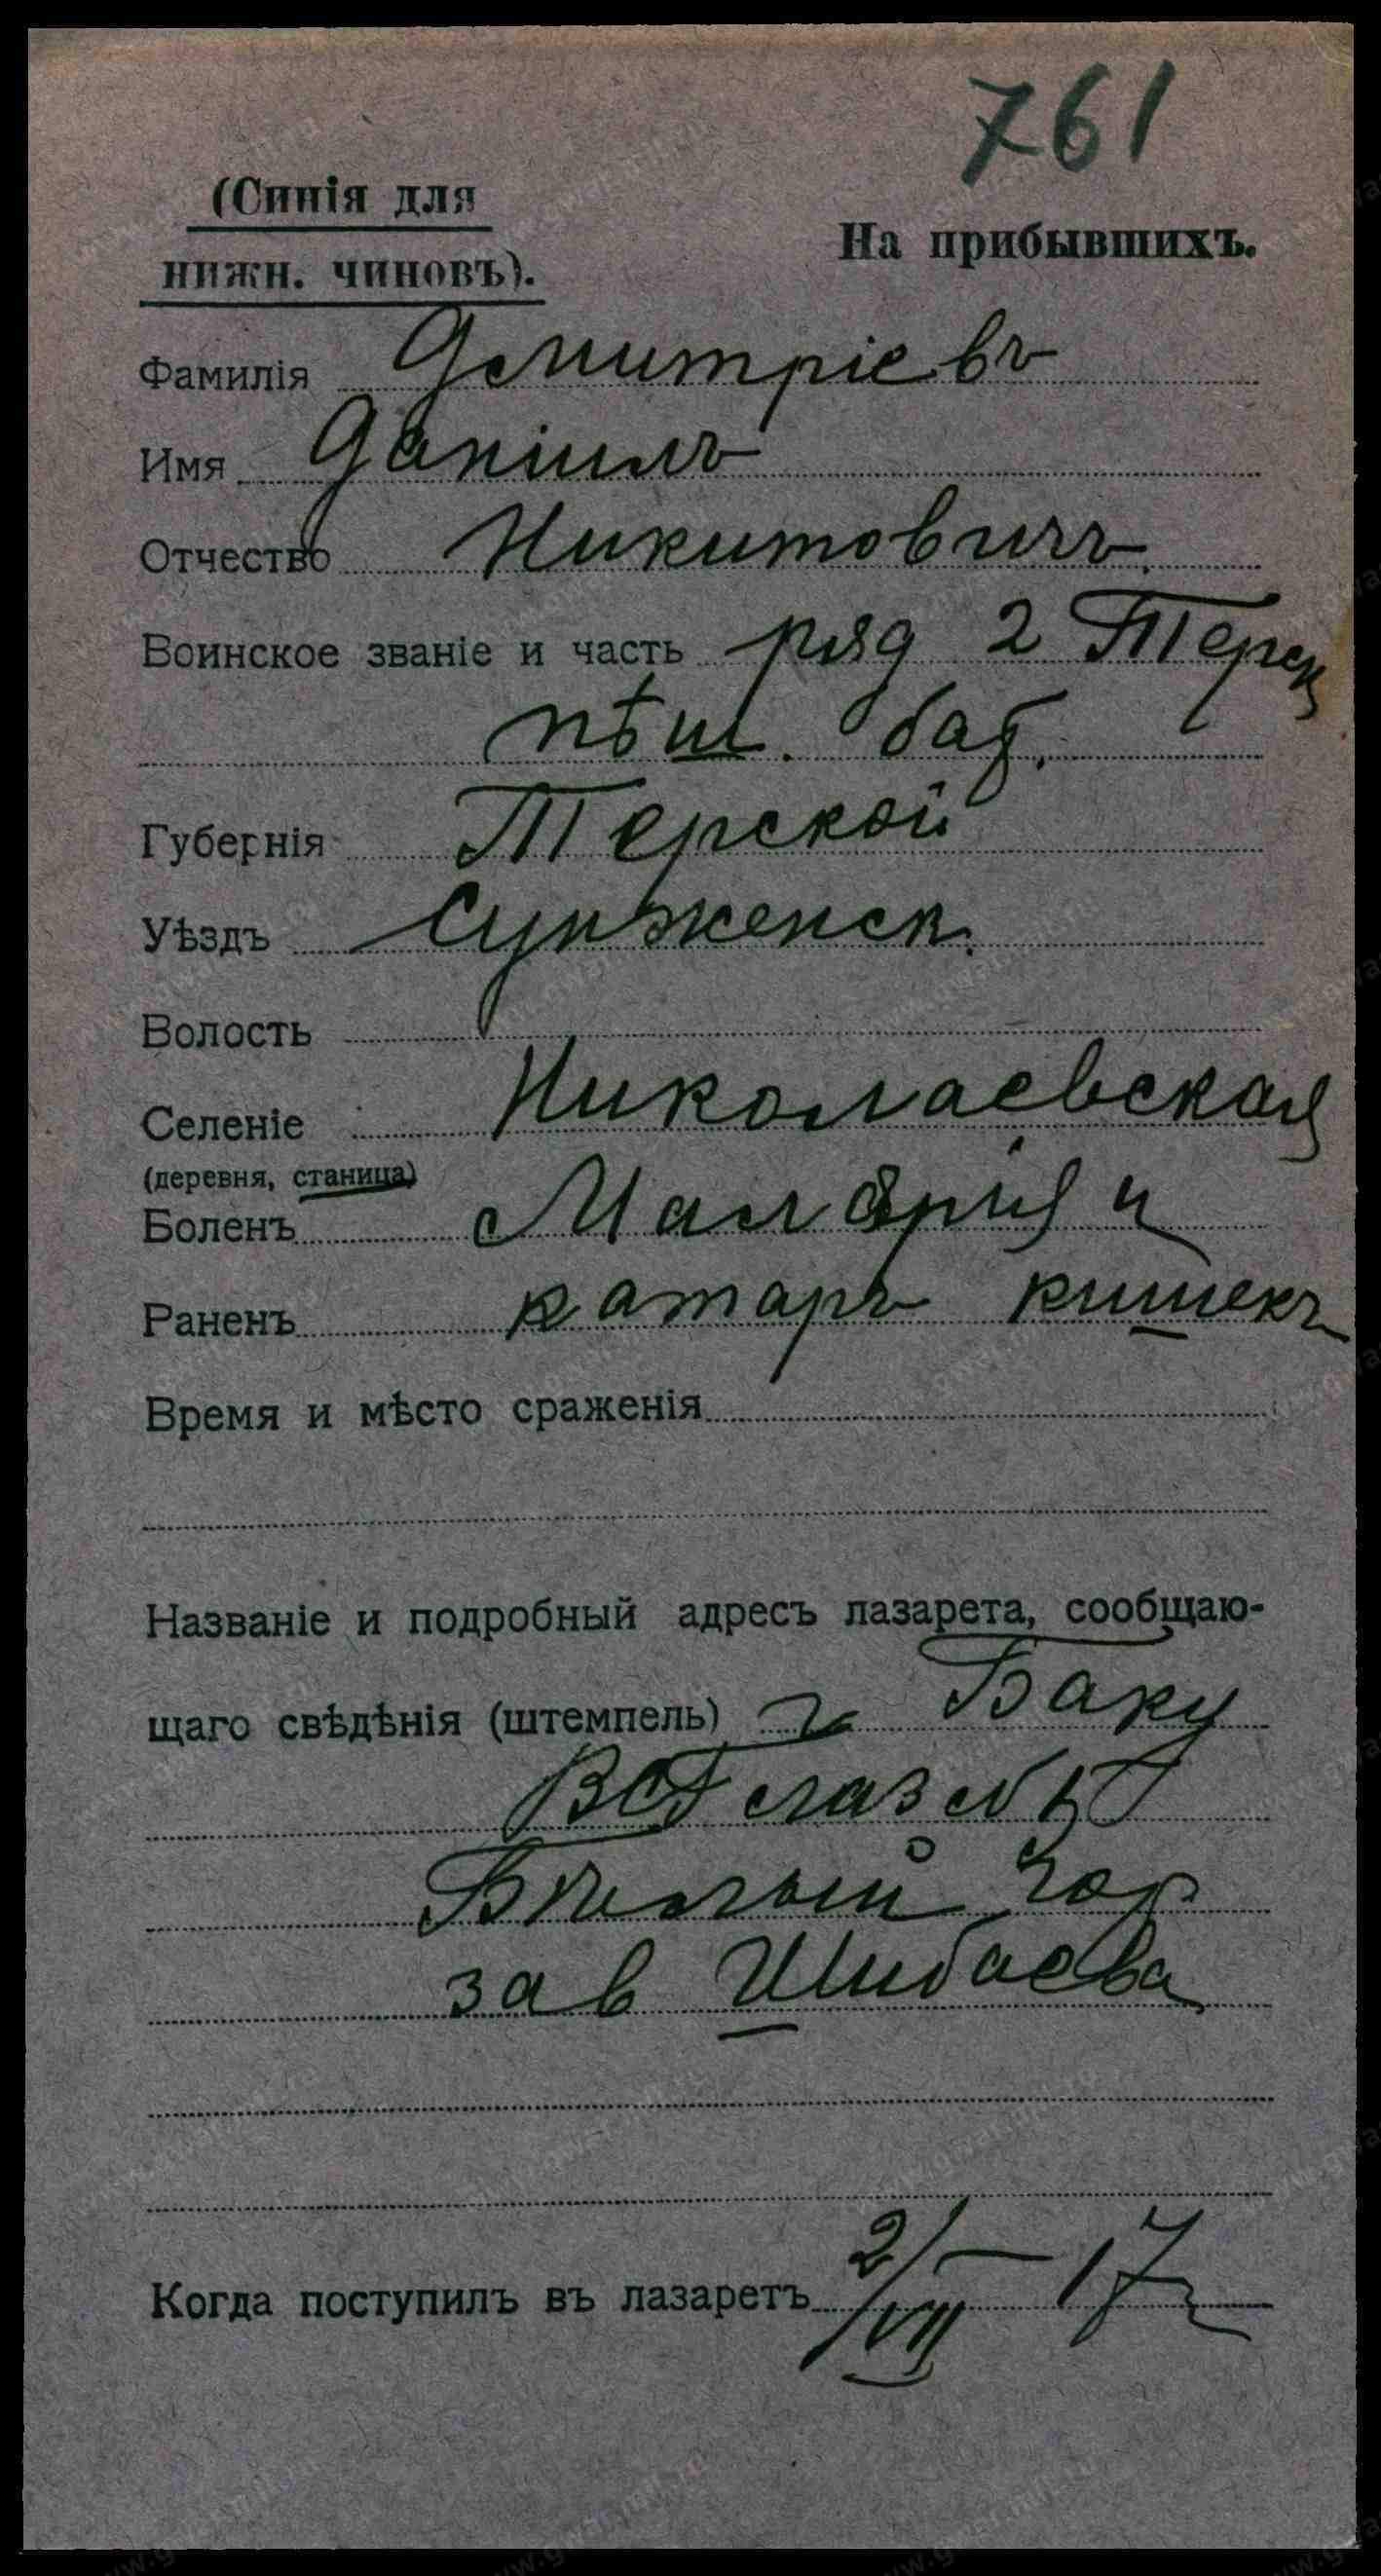 761
(Синія для
нижн. чиновъ).
На прибывшихъ.
Фамилія Дмитріевъ
Имя Даніилъ
Отчество Никитовичъ.
Воинское званіе и часть ряд 2 Терск
пѣш. бат.
Губернія Терской
Уѣздъ Сунженск.
Волость
Селеніе Николаевская
(деревня, станица)
Боленъ Малярія и
Раненъ катаръ кишекъ
Время и мѣсто сраженія
Названіе и подробный адресъ лазарета, сообщаю-
щаго свѣдѣнія (штемпель) г Баку
ВСГ лаз №
Бѣлый Гор
зав Шибаева
Когда поступилъ въ лазаретъ 2/VII — 17г